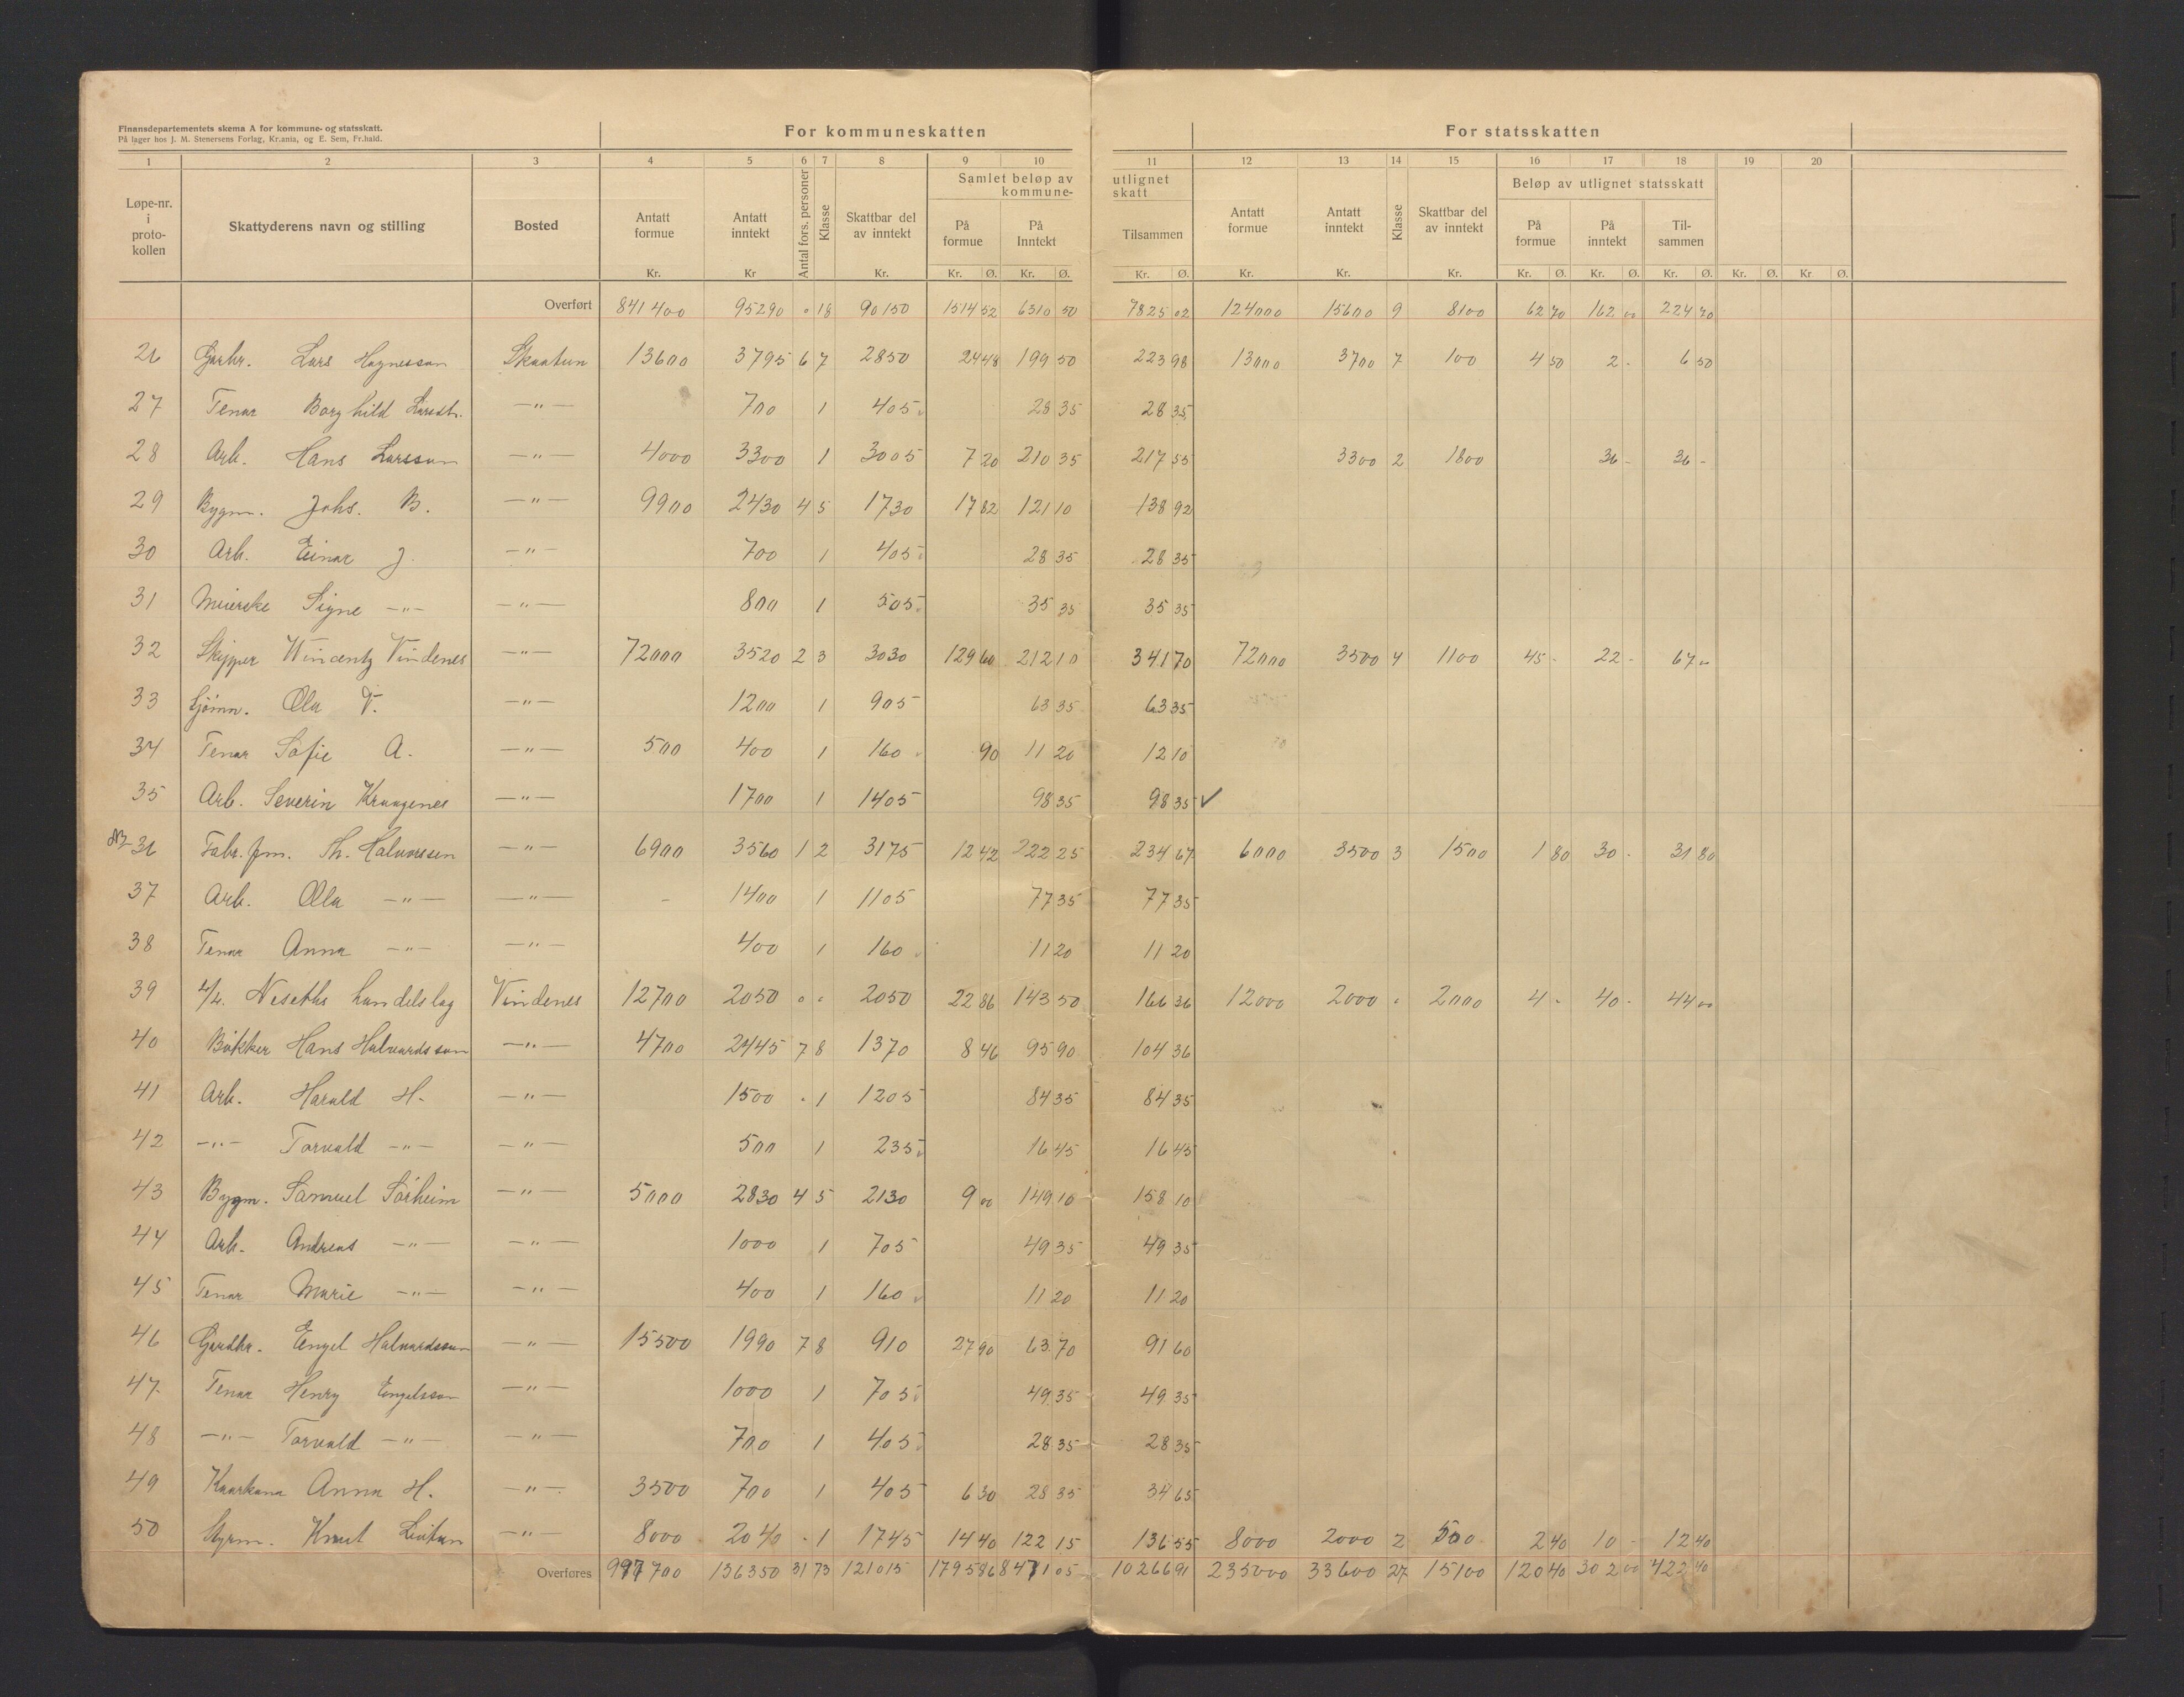 Finansdepartementets skema A for kommune- og statsskatt.
På lager hos J. M. Stenersens Forlag, Kr.ania, og E. Sem, Fr.hald.
For kommuneskatten For statsskatten
1 2 3 4 5 6 7 8 9 10 11 12 13 14 15 16 17 18 19 20
Løpe-nr. i proto-kollen Skattyderens navn og stilling Bosted Antatt formue Antatt inntekt Antal fors. personer Klasse Skattbar del av inntekt Samlet beløp av kommune- På formue På Inntekt utlignet skatt Tilsammen Antatt formue Antatt inntekt Klasse Skattbar del av inntekt Beløp av utlignet statsskatt På formue På inntekt Til-sammen
Kr. Kr Kr. Kr. Ø. Kr. Ø. Kr. Ø. Kr. Kr. Kr. Kr. Ø. Kr. Ø. Kr. Ø. Kr. Ø. Kr Ø.
Overført 841400 95290 " 18 90150 1514 52 6310 50 7825 02 124000 15600 9 8100 62 70 162 00 224 70
26 Garbr. Lars Magnesson Skaatun 13600 3795 6 7 2850 24 48 199 50 223 98 13000 3700 7 100 4 50 2 - 6 50
27 Tenar Borghild Larsdt. —"— 700 1 405 28 35 28 35
28 Arb. Hans Larsson —"— 4000 3300 1 3005 7 20 210 35 217 55 3300 2 1800 36 - 36 -
29 Bygm. Johs. B. —"— 9900 2430 4 5 1730 17 82 121 10 138 92
30 Arb. Einar J. —"— 700 1 405 28 35 28 35
31 Meierske Signe —"— —"— 800 1 505 35 35 35 35
32 Skipper Wincentz Vindenes —"— 72000 3520 2 3 3030 129 60 212 10 341 70 72000 3500 4 1100 45 - 22 - 67 00
33 Sjømn. Ola V. —"— 1200 1 905 63 35 63 35
34 Tenar Sofie A. —"— 500 400 1 160 90 11 20 12 10
35 Arb. Severin Kraagenes —"— 1700 1 1405 98 35 98 35 ✓
36 Fabr.fm. Th. Halvorssen —"— 6900 3560 1 2 3175 12 42 222 25 234 67 6000 3500 3 1500 1 80 30 - 31 80
37 Arb. Ola —"— —"— - 1400 1 1105 77 35 77 35
38 Tenar Anna —"— —"— 400 1 160 11 20 11 20
39 Neseths handelslag Vindenes 12700 2050 " " 2050 22 86 143 50 166 36 12000 2000 " 2000 4 - 40 - 44 00
40 Bøkker Hans Halvardsson —"— 4700 2445 7 8 1370 8 46 95 90 104 36
41 Arb. Harald H. —"— 1500 - 1 1205 84 35 84 35
42 —"— Torvald —"— —"— 500 1 235 16 45 16 45
43 Bygm. Samuel Sørheim —"— 5000 2830 4 5 2130 9 00 149 10 158 10
44 Arb. Andreas —"— —"— 1000 1 705 49 35 49 35
45 Tenar Marie —"— —"— 400 1 160 11 20 11 20
46 Gardbr. Engel Halvardsson —"— 15500 1990 7 8 910 27 90 63 70 91 60
47 Tenar Henry Engelsson —"— 1000 1 705 49 35 49 35
48 —"— Torvald —"— —"— 700 1 405 28 35 28 35
49 Kaarkona Anna H. —"— 3500 700 1 405 6 30 28 35 34 65
50 Styrm. Knut —"— 8000 2040 - 1 1745 14 40 122 15 136 55 8000 2000 2 500 2 40 10 - 12 40
Overføres 997700 136350 31 73 121015 1795 86 8471 05 10266 91 235000 33600 27 15100 120 40 302 00 422 40